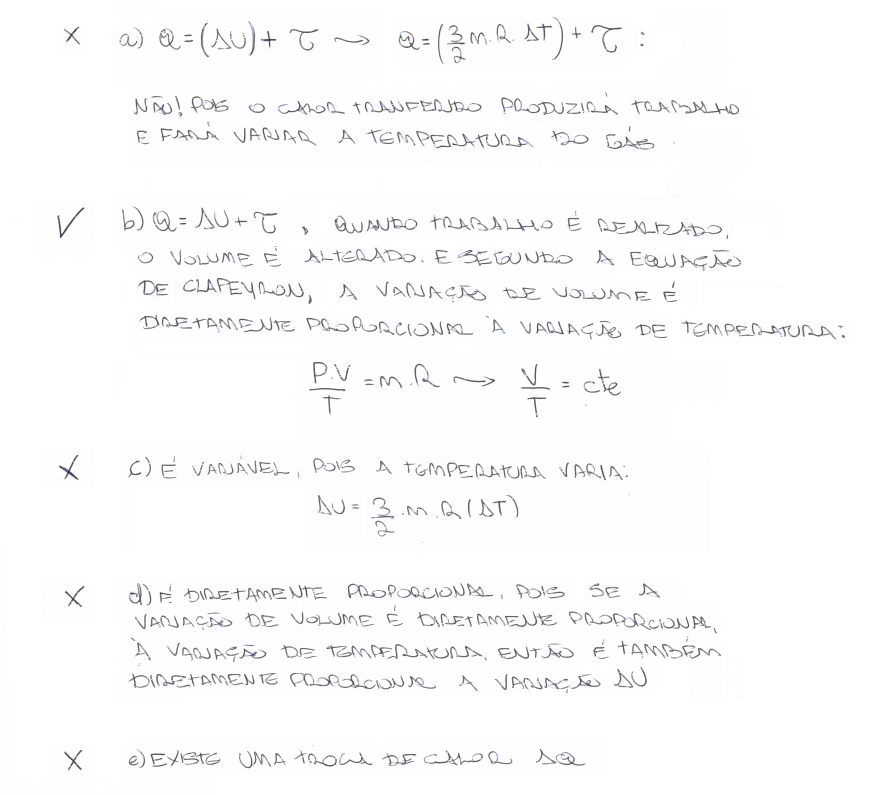 X a) Q = (ΔU) + τ ⇝ Q = (3/2 m.R.ΔT) + τ :
NÃO! POIS O CALOR TRANFERIDO PRODUZIRÁ TRABALHO
E FARÁ VARIAR A TEMPERATURA DO GÁS.
✓ b) Q = ΔU + τ, QUANDO TRABALHO É REALIZADO,
O VOLUME É ALTERADO. E SEGUNDO A EQUAÇÃO
DE CLAPEYRON, A VARIAÇÃO DE VOLUME É
DIRETAMENTE PROPORCIONAL À VARIAÇÃO DE TEMPERATURA:
P.V/T = m.R ⇝ V/T = cte
X c) É VARIÁVEL, POIS A TEMPERATURA VARIA:
ΔU = 3/2 .m.R(ΔT)
X d) É DIRETAMENTE PROPORCIONAL, POIS SE A
VARIAÇÃO DE VOLUME É DIRETAMENTE PROPORCIONAL,
À VARIAÇÃO DE TEMPERATURA, ENTÃO É TAMBÉM
DIRETAMENTE PROPORCIONAL A VARIAÇÃO ΔU
X e) EXISTE UMA TROCA DE CALOR ΔQ